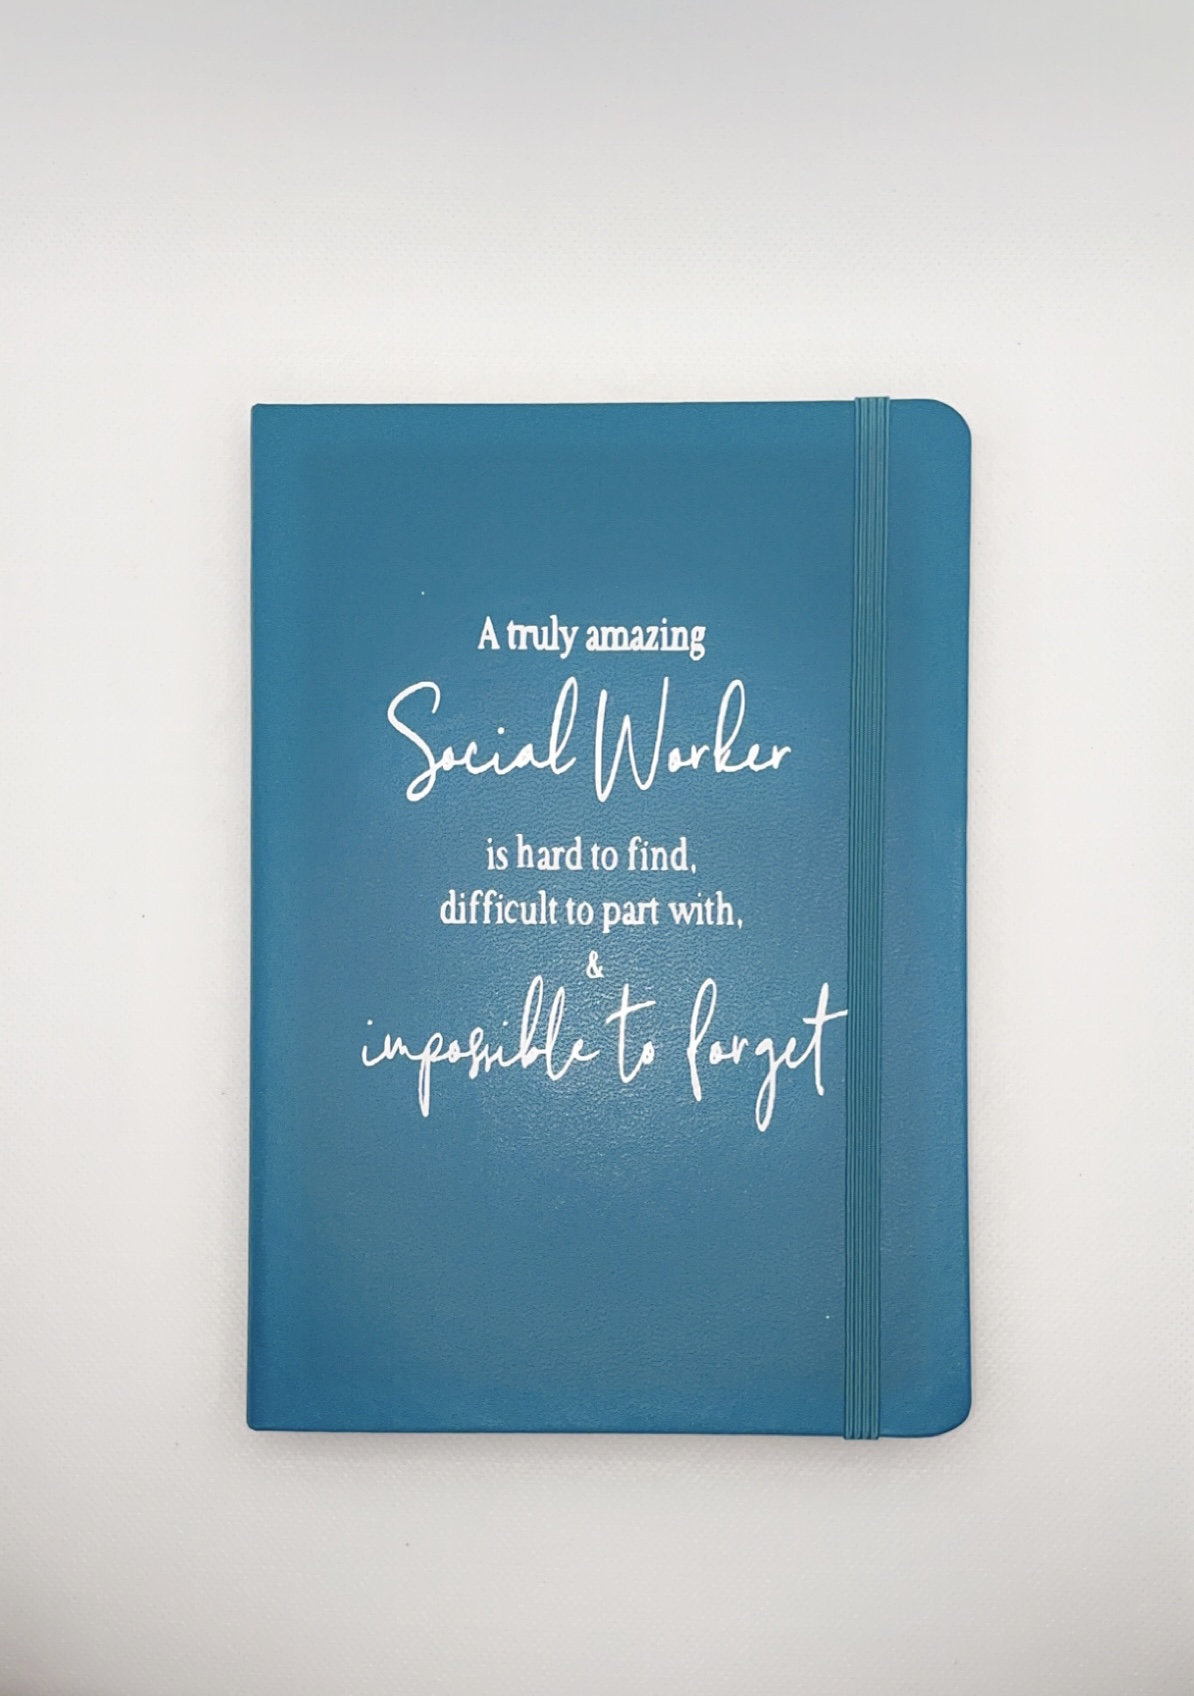 A truly amazing
Social Worker
is hard to find,
difficult to part with,
&
impossible to forget